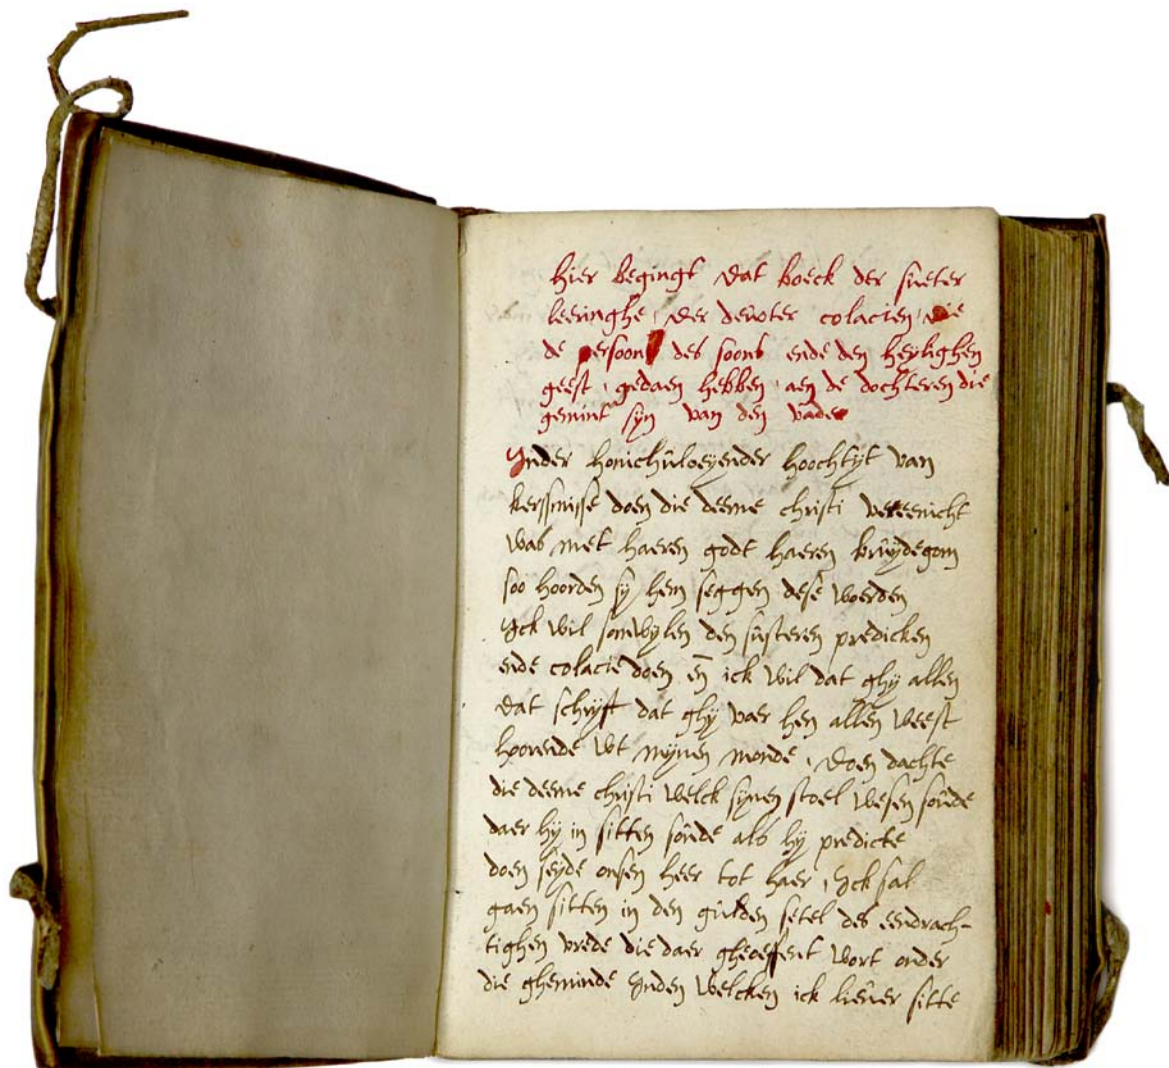 hier begingt dat boeck der sueter
leeringhe, der devoter colacien, die
de persoon des soons ende den heylighen
geest, gedaen hebben, aen de dochteren die
gemint syn van den vader
Inder honichvloeyender hoochtyt van
kerssmisse doen die deerne christi vereenicht
was met haeren godt haeren bruydegom
soo hoorden sy hem seggen dese woerden
Ick wil somwylen den susteren predicken
ende colacie doen en̄ ick wil dat ghy allen
dat schryft dat ghy vaer hen allen weest
hoorende wt mynen monde, doen dachte
die deerne christi welck synen stoel wesen soude
daer hy in sitten soude als hy predicte
doen seyde onsen heer tot haer, Ick sal
gaen sitten in den gulden setel des eendrach-
tighen vrede die daer gheoeffent wort onder
die gheminde Inden welcken ick liever sitte